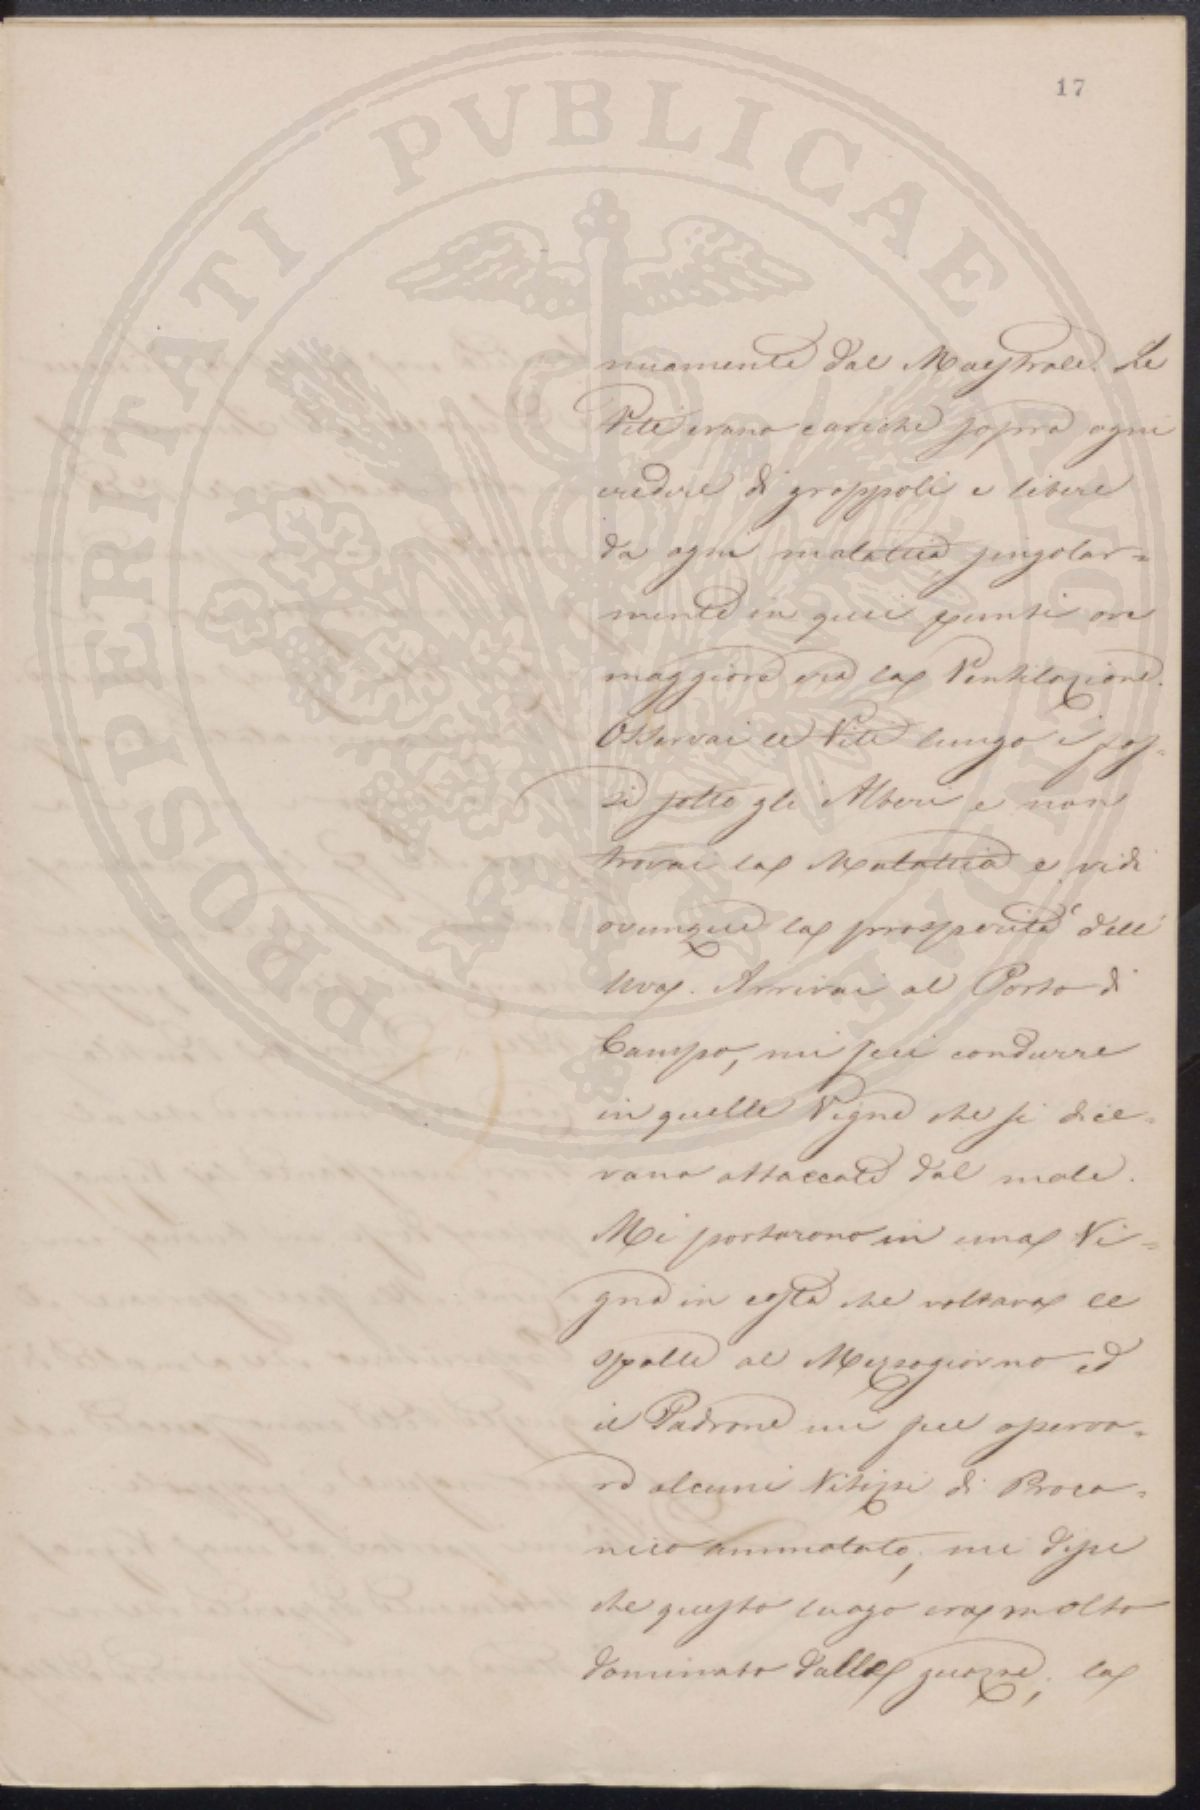 17
nuamente dal Maestrale. Le
Viti erano cariche sopra ogni
credere di grappoli e libere
da ogni malattia singolar=
mente in quei punti ove
maggiore era la Ventilazione.
Osservai le Viti lungo i fos=
si sotto gli Alberi e non
trovai la Malattia e vidi
ovunque la prosperità dell'
Uva. Arrivai al Porto di
Campo, mi feci condurre
in quelle Vigne che si dice=
vano attaccate dal male.
Mi portarono in una Vi=
gna in costa che voltava le
spalle al Mezzogiorno ed
il Padrone mi fece osserva=
re alcuni Vitizzi di Proca=
nico ammalato, mi disse
che questo luogo era molto
dominato dalla guazza, la
PROSPERITATI PVBLICAE AVGENDAE